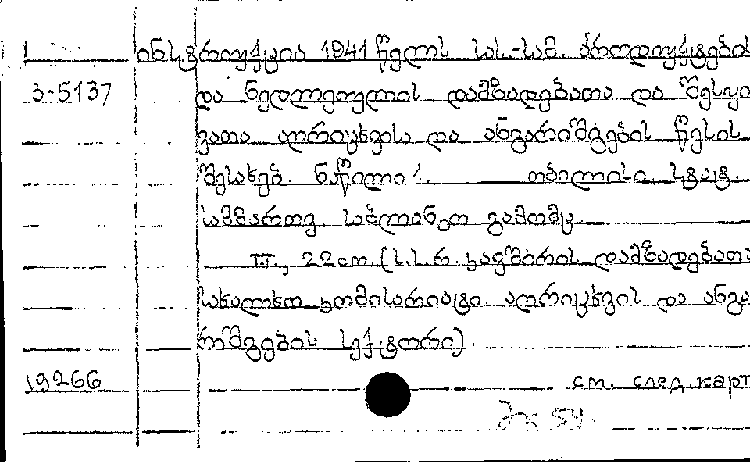 ინსტრუქცია 1941 წელს სას.-სამ. პროდუქტების
3-5137 და ნედლეულის დამზადებათა და შესყი
ვათა აღრიცხვისა და ანგარიშგების წესის
შესახებ. ნაწილი 1. თბილისი. სტატ.
სამმართვ. საბლანკო გამომც.
22 cm. (ს.ს.რ. კავშირის დამზადებათა
სახალხო კომისარიატი. აღრიცხვის და ანგა
რიშგების სექტორი)
19266 см. след. карт